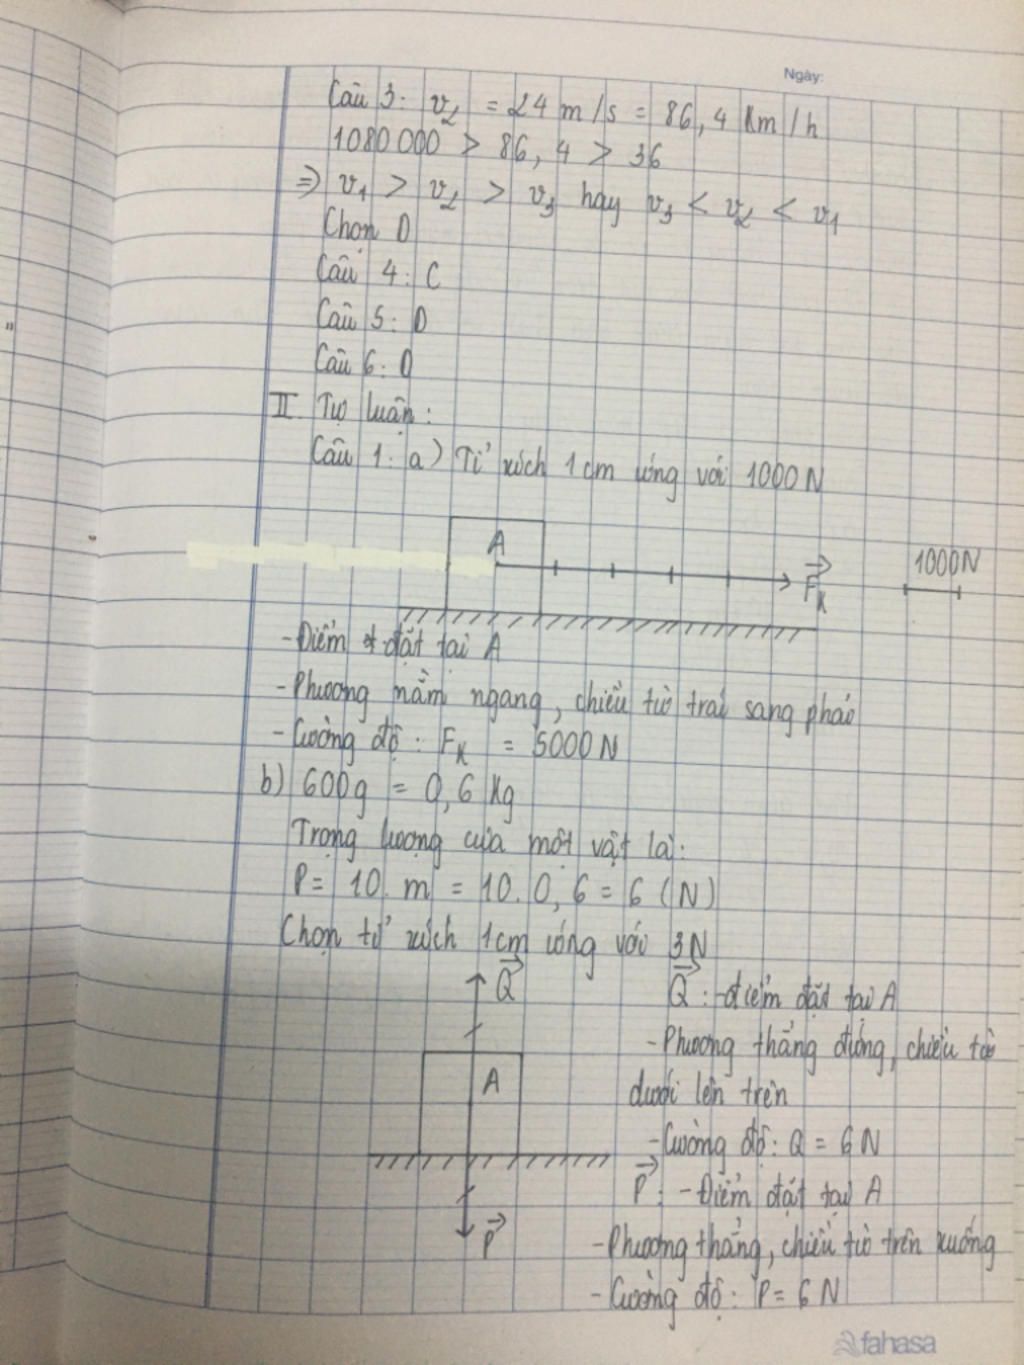 Ngày:
Câu 3: v2 = 24 m/s = 86,4 Km/h
1080000 > 86,4 > 36
=> v1 > v2 > v3 hay v3 < v2 < v1
Chọn D
Câu 4: C
Câu 5: D
Câu 6: D
II. Tự luận:
Câu 1: a) Tỉ xích 1cm ứng với 1000N
A
F⃗K
1000N
- Điểm đặt tại A
- Phương nằm ngang, chiều từ trái sang phải
- Cường độ: FK = 5000N
b) 600g = 0,6 Kg
Trọng lượng của một vật là:
P = 10.m = 10.0,6 = 6 (N)
Chọn tỉ xích 1cm ứng với 3N
Q⃗
A
P⃗
Q⃗: - điểm đặt tại A
- Phương thẳng đứng, chiều từ
dưới lên trên
- Cường độ: Q = 6N
P⃗: - Điểm đặt tại A
- Phương thẳng, chiều từ trên xuống
- Cường độ: P = 6N
fahasa